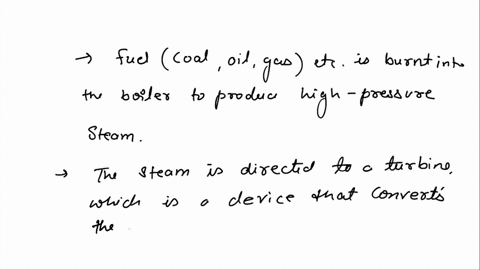 → fuel (coal, oil, gas) etc. is burnt into
the boiler to produce high-pressure
Steam.
→ The steam is directed to a turbine,
which is a device that converts
the